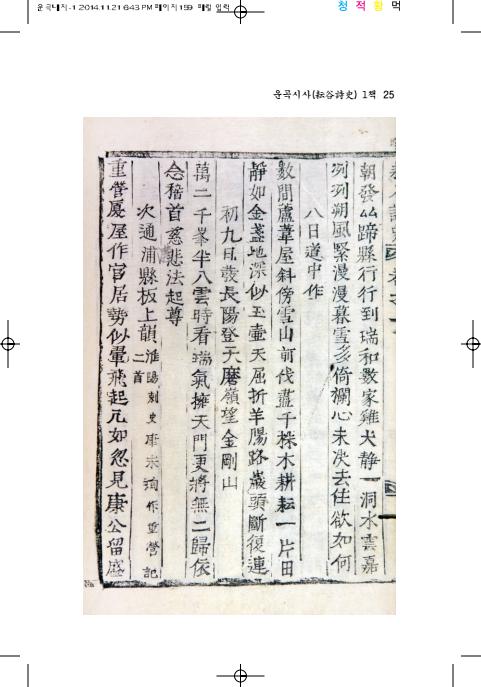 운곡대지-1 2014.11.21 6:43 PM 페이지159 매킬 입력
청 적 황 먹
운곡시사(耘谷詩史) 1책 25
朝發㕘蹄縣行行到瑞和數家雞犬静一洞水雲嘉
冽冽朔風緊漫漫暮雪多倚欄心未决去住欲如何
八日道中作
數間蘆葦屋斜傍雪山前伐盡千株木耕耘一片田
靜如金盞地深似玉壷天屈折羊膓路巖頭斷復連
初九日發長陽登天磨嶺望金剛山
萬二千峯半入雲時看瑞氣擁天門更將無二歸依
念稽首慈悲法起尊
次通浦縣板上韻 淮陽刺史康朱洵作重營記二首
重營廈屋作官居勢似翬飛起兀如忽見康公留盛